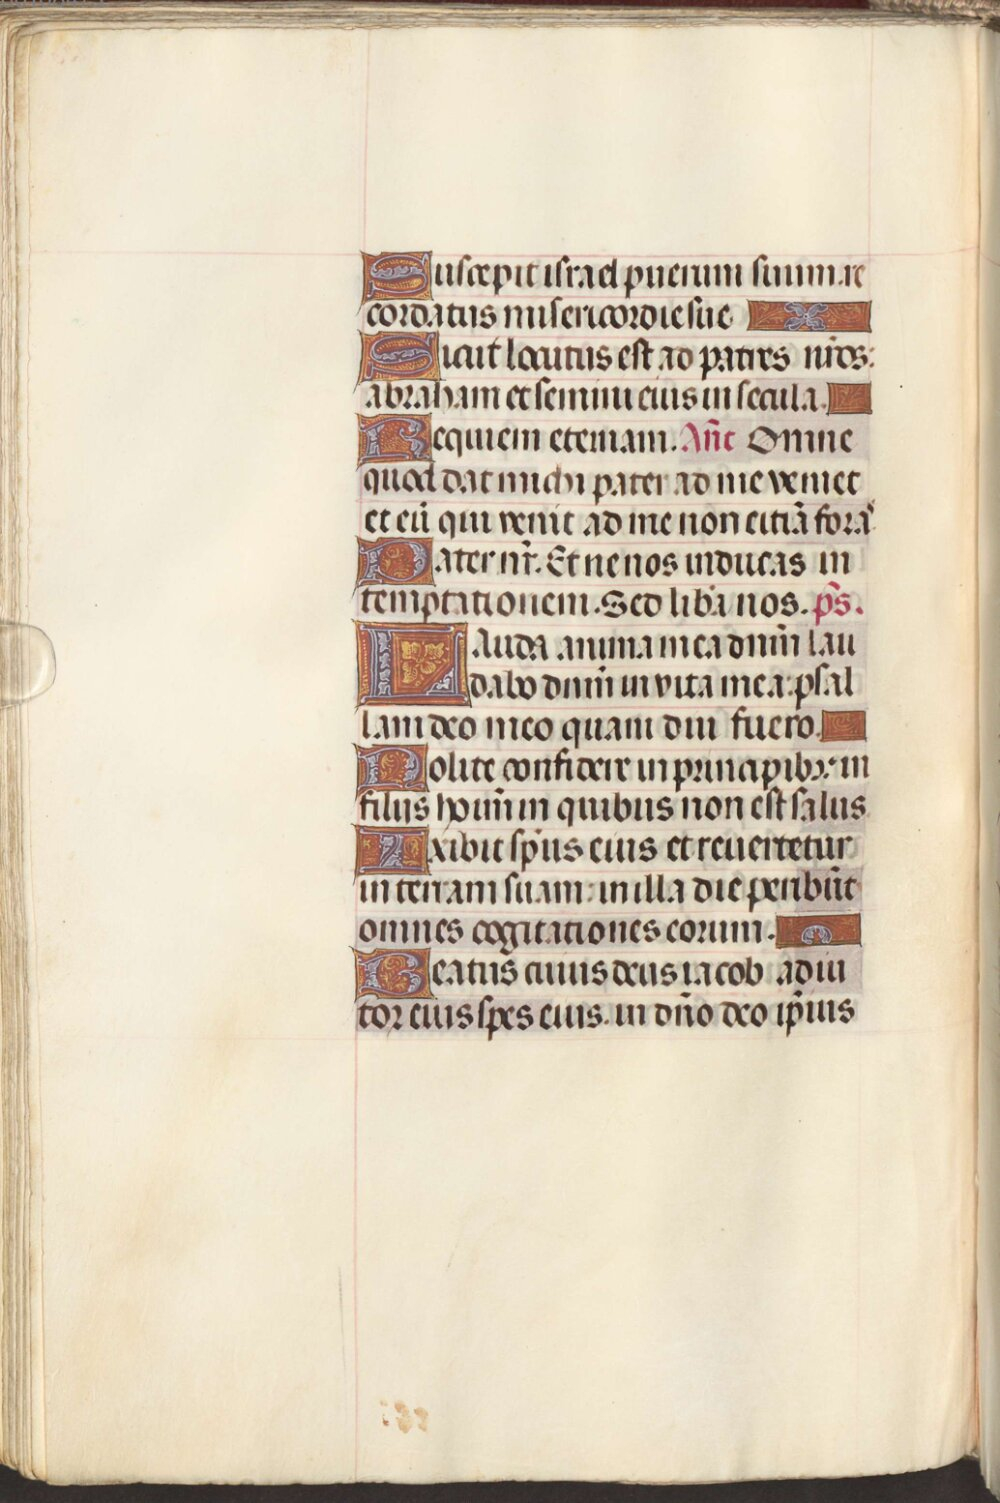 Suscepit israel puerum suum: re
cordatus misericordie sue
Sicut locutus est ad patres nr̃os:
abraham et semini eius in secula.
Requiem eternam. Añt Omne
quod dat michi pater ad me veniet
et eũ qui venit ad me non eitiã forã
Pater nr̃. Et ne nos inducas in
temptationem. Sed libã nos. p̃s.
Lauda anima mea dnm̃ lau
dabo dnm̃ in vita mea: psal
lam deo meo quam diu fuero.
Nolite confidere in principibꝫ: in
filiis hoim̃ in quibus non est salus
Exibit sp̃us eius et reuertetur
in terram suam: in illa die peribũt
omnes cogitationes eorum.
Beatus cuius deus iacob adiu
tor eius spes eius. in dño deo ip̃ius